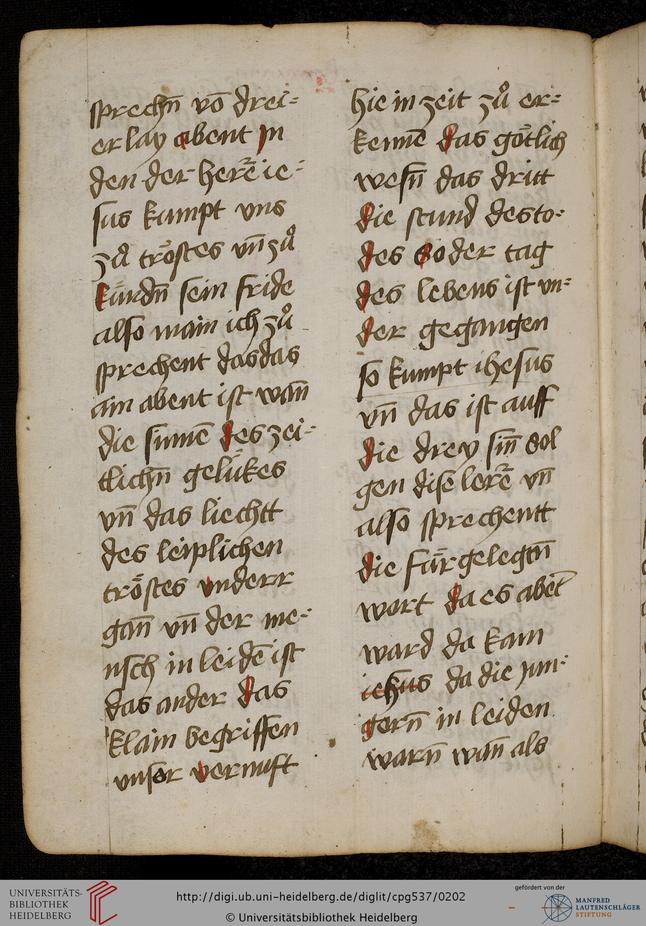 sprechn̄ vō drei⸗
erlay abent jn
den der herē ie⸗
sus kumpt vns
zů trőstes vn̄ zů
kündn̄ sein fride
also main ich zů
sprechent das das
ain abent ist wān
die sinnē des zei⸗
tlichn̄ gelükes
vn̄ das liechtt
des leiplichen
trőstes vnderr
gān vn̄ der me⸗
nsch in leidē ist
das ander das
klain begriffen
vnser vernuft
hie in zeit zů er⸗
kennē das gőtlich
wesn̄ das dritt
die stund desto⸗
des So der tag
des lebens ist vn⸗
der gegangen
so kumpt ihesus
vn̄ das ist auff
die drey sin̄ sol
gen dise lerē vn̄
also sprechentt
die fürgelegtn̄
wort da es abēt
ward da kam
iehsus da die jun⸗
gern̄ in leiden
warn̄ wān als
UNIVERSITÄTS-
BIBLIOTHEK
HEIDELBERG
http://digi.ub.uni-heidelberg.de/diglit/cpg537/0202
© Universitätsbibliothek Heidelberg
gefördert von der
MANFRED
LAUTENSCHLÄGER
STIFTUNG